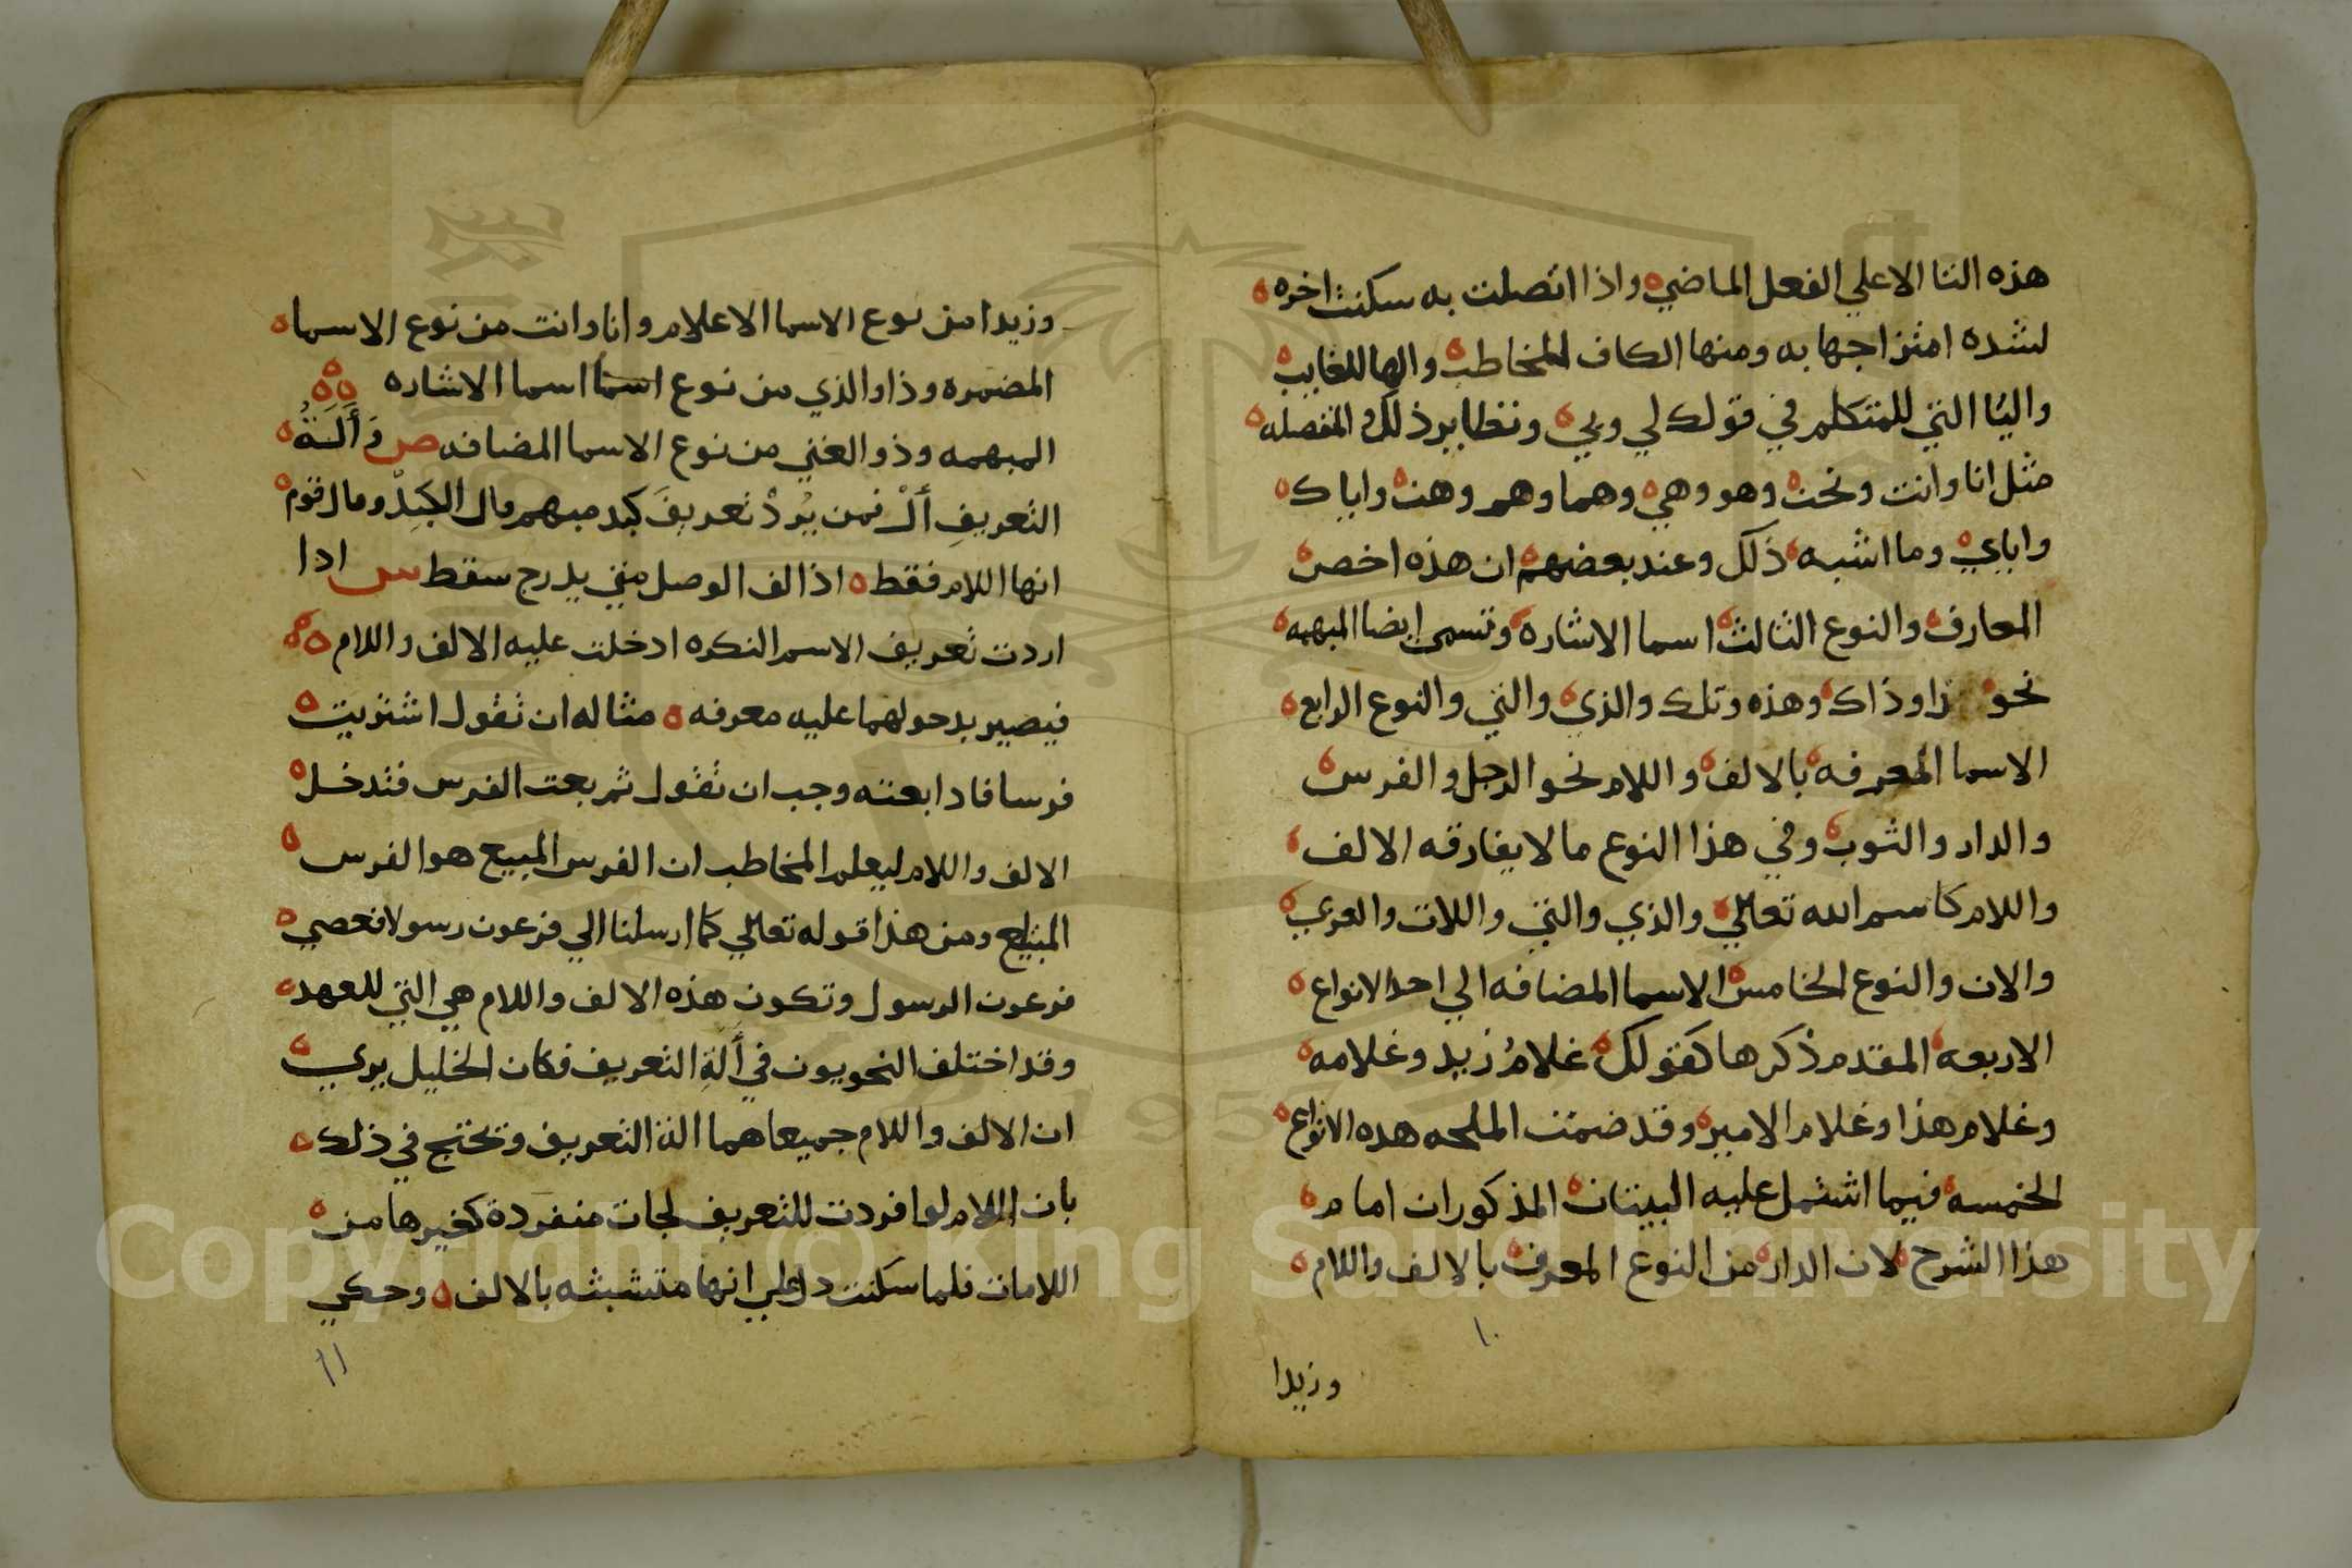 هذه التا الا علي الفعل الماضي واذا اتصلت به سكنت اخره
لشده امتزاجها به ومنها الكاف للمخاطب والها للغايب
واليا التي للمتكلم في قولك لي وبي ونظاير ذلك المنفصله
مثل انا وانت ونحن وهو وهي وهما وهم وهن واياك
واياي وما اشبه ذلك وعند بعضهم ان هذه اخص
المعارف والنوع الثالث اسما الاشاره وتسمى ايضا المبهمه
نحو ذا وذاك وهذه وتلك والذي والتي والنوع الرابع
الاسما المعرفه بالالف واللام نحو الرجل والفرس
والدار والثوب وفي هذا النوع ما لا يفارقه الالف
واللام كاسم الله تعالي والذي والتي واللات والعزي
والان والنوع الخامس الاسما المضافه الي احد الانواع
الاربعه المقدم ذكرها كقولك غلامُ زيد وغلامه
وغلام هذا وغلام الامير وقد ضمنت الملحه هذه الانواع
الخمسه فيما اشتمل عليه البيتان المذكوران امام
هذا الشرح لان الدار من النوع المعرف بالالف واللام
١٠
وزيدا
وزيدا من نوع الاسما الاعلام وانا وانت من نوع الاسما
المضمره وذا والذي من نوع اسما اسما الاشاره
المبهمه وذو الغني من نوع الاسما المضافه ص وَأَلَةُ
التعريفِ ألْ فمن يُرِدْ تعريفَ كبد مبهم قال الكبِدْ وقال قوم
انها اللام فقط اذ الف الوصل متي يدرج سقط س اذا
اردت تعريف الاسم النكره ادخلت عليه الالف واللام
فيصير بدخولهما عليه معرفه مثاله ان تقول اشتريت
فرسا فاذا بعته وجب ان تقول ثم بعت الفرس فتدخل
الالف واللام ليعلم المخاطب ان الفرس المبيع هو الفرس
المبتاع ومن هذا قوله تعالي كما ارسلنا الي فرعون رسولا فعصي
فرعون الرسول وتكون هذه الالف واللام هي التي للعهد
وقد اختلف النحويون في أَلَةِ التعريف فكان الخليل يري
ان الالف واللام جميعا هما الة التعريف وتحتج في ذلك
بان اللام لو افردت للتعريف لجات منفردة كغيرها من
اللامات فلما سكنت دل علي انها متشبثه بالالف وحكي
١١
Copyright © King Saud University